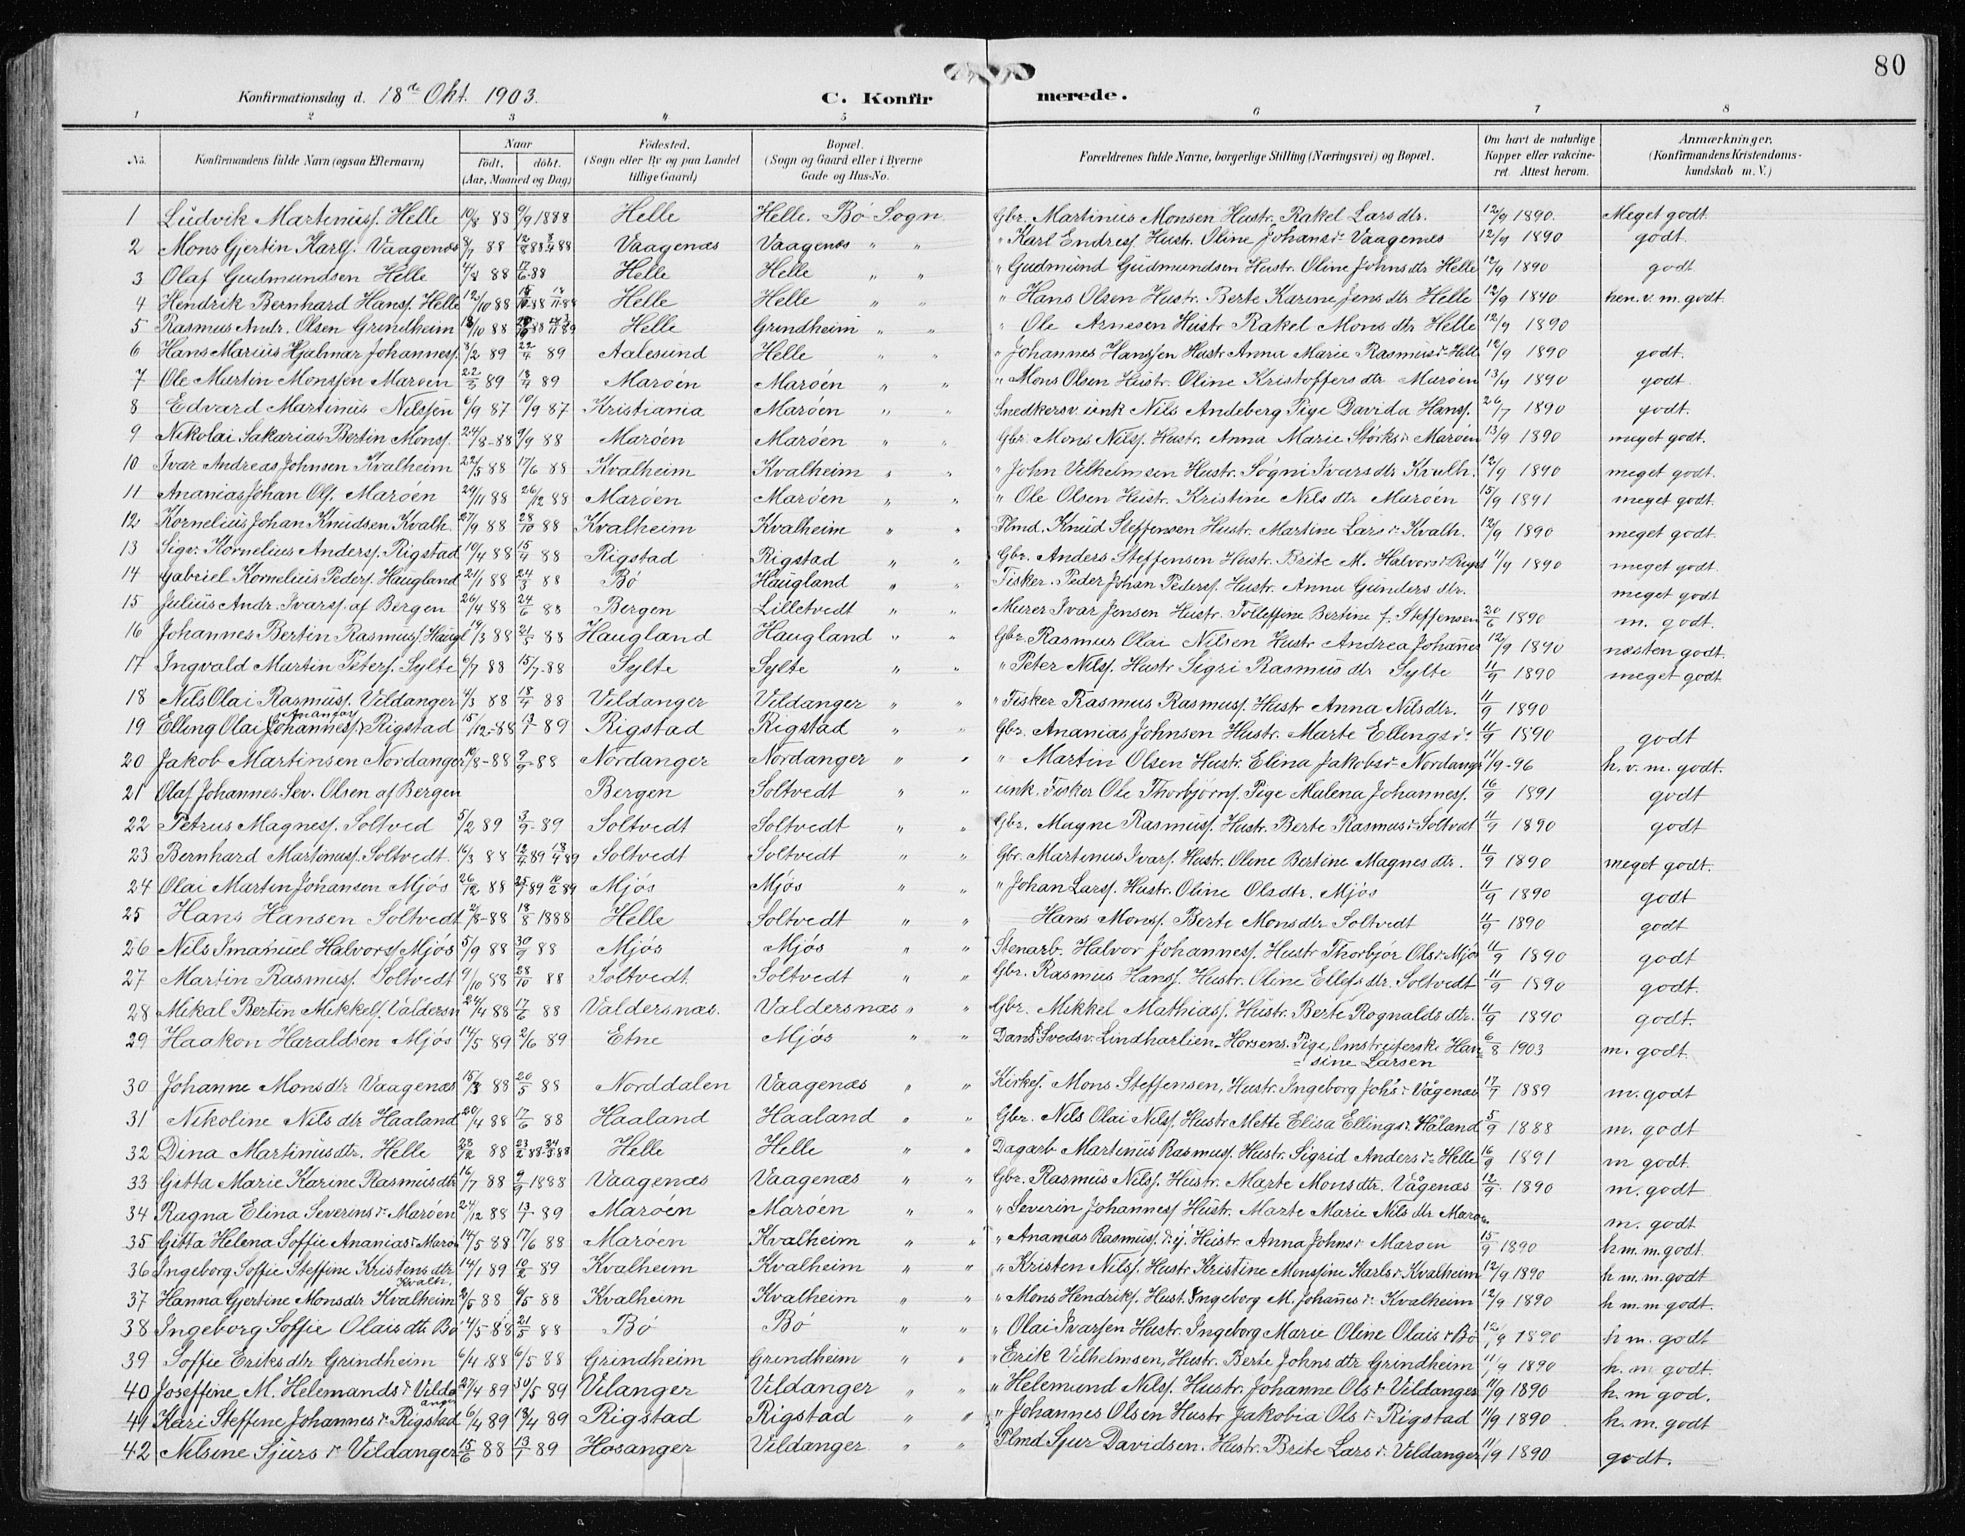 80
Konfirmationsdag d. 18de Okt. 1903. C. Konfirmerede.
1 2 3 4 5 6 7 8
No. Konfirmandens fulde Navn (ogsaa Efternavn) Naar födt. döbt. (Aar, Maaned og Dag) Födested. (Sogn eller By og paa Landet tillige Gaard) Bopæl. (Sogn og Gaard eller i Byerne Gade og Hus-No. Forældrenes fulde Navne, borgerlige Stilling (Næringsvei) og Bopæl. Om havt de naturlige Kopper eller vakcineret. Attest herom. Anmærkninger. (Konfirmandens Kristendomskundskab m. V.)
1 Ludvik Martinusf. Helle 10/8 88 9/9 1888 Helle Helle. Bö Sogn Gbr. Martinus Monsen Hustr. Rakel Larsdtr. 12/9 1890. Meget godt.
2 Mons Gjertin Karlf. Vaagenæs 8/7 88 Vaagenæs Vaagenæs " " " Karl Endresf Hustr. Oline Johansdr Vaagenæs 12/9 1890 godt.
3 Olaf Gudmundsen Helle 4/4 88 17/6 88 Helle Helle " " " Gudmund Gudmundsen Hustr. Oline Johnsdtr Helle 12/9 1890 godt
4 Hendrik Bernhard Hansf. Helle 12/10 88 Helle Helle " " " Hans Olsen Hustr. Berte Karine Jensdtr Helle 12/9 1890 hen. v. m. godt.
5 Rasmus Andr. Olsen Grindheim 18/10 88 Helle Grindheim " " " Ole Arnesen Hustr Rakel Monsdtr Helle 12/9 1890
6 Hans Marius Hjalmar Johannesf. 8/2 89 22/4 89 Aalesund Helle " " " Johannes Hansen Hustr Anna Marie Rasmusdr Helle 12/9 1890 godt.
7 Ole Martin Monssen Maröen 22/3 89 18/4 89 Maröen Maröen " " " Mons Olsen Hustr. Oline Kristoffersdtr Maröen 13/9 1890 godt.
8 Edvard Martinus Nilssen 6/9 87 10/9 87 Kristiania Maröen " " Snedkersv. unk Nils Andeberg Pige Davida Hansf. 26/7 1890 godt.
9 Nikolai Sakarias Bertin Monsf. 24/8-88 9/9 88 Maröen Maröen " " Gbr. Mons Nilsf. Hustr. Anna Marie Störksdr Maröen 13/9 1890 meget godt.
10 Ivar Andreas Johnsen Kvalheim 22/5 88 17/6 88 Kvalheim Kvalheim " " " John Vilhelmsen Hustr. Sögni Ivarsdtr Kvalh. 12/9 1890. meget godt.
11 Ananias Johan Olf. Maröen 29/11 88 26/12 88 Maröen Maröen " " " Ole Olsen Hustr. Kristine Nilsdtr Maröen 15/9 1891 meget godt.
12 Kornelius Johan Knudsen Kvalh. 27/9 88 28/10 88 Kvalheim Kvalheim " " Plmd. Knud Steffensen Hustr. Martine Larsdr Kvalh. 12/9 1890 meget godt.
13 Sigv. Kornelius Andersf. Rigstad 10/4 88 15/4 88 Rigstad Rigstad " " Gbr. Anders Steffensen Hustr. Brite M. Halvorsdr Rigst 11/9 1890 meget godt.
14 Gabriel Kornelius Pedersf. Haugland 21/1 88 24/3 88 Bö Haugland " " Fisker. Peder Johan Pedersf. Hustr. Anna Gundersdtr. meget godt
15 Julius Andr. Ivarsf. af Bergen 26/4 88 24/6 88 Bergen Lilletvedt " " Murer Ivar Jensen Hustr. Tolleffine Bertine f. Steffensen 20/6 1890 m. godt.
16 Johannes Bertin Rasmusf. Haugl 14/3 88 21/5 88 Haugland Haugland " " Gbr. Rasmus Olai Nilsen Hustr Andrea Johannes 12/9 1890 næsten godt.
17 Ingvald Martin Petersf. Sylte 6/7 88 15/7-88 Sylte Sylte " " " Peter Nilsf. Hustr Sigri Rasmusdtr Sylte 11/9 1890 meget godt.
18 Nils Olai Rasmusf. Vildanger 4/3 88 18/4 88 Vildanger Vildanger " " " Fisker Rasmus Rasmusf. Hustr Anna Nilsdtr. 11/9 1890
19 Elling Olai Johannesf. Rigstad 15/12-88 13/7 89 Rigstad Rigstad " " Gbr. Ananias Johnsen Hustr. Marte Ellingsdr. 11/9 1890 godt
20 Jakob Martinsen Nordanger 10/8-88 9/9-88 Nordanger Nordanger " " " Martin Olsen Hustr. Elina Jakobsdr Nordangr 11/9-96 h. v. m. godt.
21 Olaf Johannes Sev. Olsen af Bergen Bergen Soltvedt " " unk. Fisker Ole Thorbjörnf. Pige Malena Johannesf. 16/9 1891 godt
22 Petrus Magnesf. Soltved 5/2 89 3/9-89 Soltvedt Soltvedt " " Gbr. Magne Rasmusf. Hustr. Berte Rasmusdr Soltvedt 11/9 1890 godt
23 Bernhard Martinusf. Soltvedt 16/3 88 Soltvedt Soltvedt " " Gbr. Martinus Ivarf. Hustr. Oline Bertine Magnesdtr. 11/9 1890 meget godt.
24 Olai Martin Johansen Mjös 26/12 88 Mjös Mjös " " " Johan Larsf. Hustr. Oline Olsdtr. Mjös 11/9 1890 godt
25 Hans Hansen Soltvedt 2/8-88 18/8 1888 Helle Soltvedt " " Hans Monsf. Berte Monsdtr Soltvedt 11/9 1890 godt
26 Nils Imanuel Halvorsf Mjös 5/9 88 30/9 88 Mjös Mjös " " Stenarb. Halvor Johannesf. Hustr Thorbjör Olsdr Mjös 11/9 1890 godt
27 Martin Rasmusf. Soltvedt 9/10 88 28/10 88 Soltvedt. Soltvedt " " Gbr. Rasmus Hansf. Hustr. Oline Ellefsdtr. Soltvedt 11/9 1890 godt.
28 Mikal Bertin Mikkelf. Valdersn 24/4 88 17/6 88 Valdersnæs. Valdersnæs " " Gbr. Mikkel Mathiasf. Hustr. Berte Rognaldsdtr. 11/9 1890 godt.
29 Haakon Haraldsen Mjös 14/5 89 2/6 89 Etne Mjös " " Dansk Svedsv. Lindharlien-Horsens. Pige Omstreiferske Han=sine Larsen 6/8 1903 m. godt.
30 Johanne Monsdtr Vaagenæs 15/3 88 20/5 88 Norddalen Vaagenæs " " Kirkesf. Mons Steffensen, Hustr. Ingeborg Johsdr Vågenæs 17/9 1889 m. godt
31 Nikoline Nilsdtr Haaland 20/4 88 17/6 88 Haaland Haaland " " Gbr. Nils Olai Nilsf. Hustr Mette Elisa Ellingsdr. Håland 5/9 1888 m. godt
32 Dina Martinusdtr. Helle 88 Helle Helle " " Dagarb Martinus Rasmusf. Hustr. Sigrid Andersdr Helle 16/9 1891 m godt.
33 Gitta Marie Karine Rasmusdtr 16/7 88 9/9 1888 Vaagenæs Vaagenæs " " Gbr. Rasmus Nilsf. Hustr. Marte Monsdtr. Vågenæs 12/9 1890 m. godt
34 Ragna Elina Severinsdr Maröen 24/12 88 13/7 89 Maröen Maröen " " " Severin Johannesf Hustr. Marte Marie Nilsdtr Marøe m. godt
35 Gitta Helena Soffie Ananiasdr Marön 14/5 88 17/6 88 Maröen Kvalheim " " " Ananias Rasmusf. Hustr. Anna Johnsdr Maroen 15/9 1890 h m. m. godt.
36 Ingeborg Soffie Steffine Kristensdtr Kvalh. 14/1 89 10/2 89 Kvalheim Kvalheim " " " Kristen Nilsf. Hustr Kristine Monssine Karlsdr Kvalheim 12/9 1890 h m. m. godt
37 Hanna Gjertine Monsdtr Kvalheim 2/5 88 9/5 88 Kvalheim Kvalheim " " " Mons Hendriksf. Hust. Ingeborg M. Johannesdr Kvalheim 12/9 1890 h m. m godt.
38 Ingeborg Soffie Olaisdtr Bö 14/5 88 21/5 88 Bö Bö " " " Olai Ivarsen Hustr. Ingeborg Marie Oline Olaisdr Bö 12/9 1890 h m. godt
39 Soffie Eriksdtr Grindheim 6/4 88 6/5 88 Grindheim Grindheim " " " Erik Vilhelmsen, Hustr. Berte Johnsdtr Grindheim 11/9 1890 h. m godt.
40 Joseffine M. Helemandsdr Vildanger 27/4 89 30/5 89 Vilanger Vildanger " " " Helemund Nilsf. Hustr. Johanne Olsdr Vildanger 11/9 1890 h. m god.
41 Kari Steffine Johannesdr Rigstad 6/4 89 18/4 89 Rigstad Rigstad " " " Johannes Olsen Hustr Jakobia Olsdr Rigstad 11/9 1890. h. m. godt
42 Nilsine Sjursdr Vildanger 15/6 88 13/7 89 Hosanger Vildanger " " Plmd Sjur Davidsen. Hustr. Brite Larsdr. Vildanger 11/9 1890 godt.